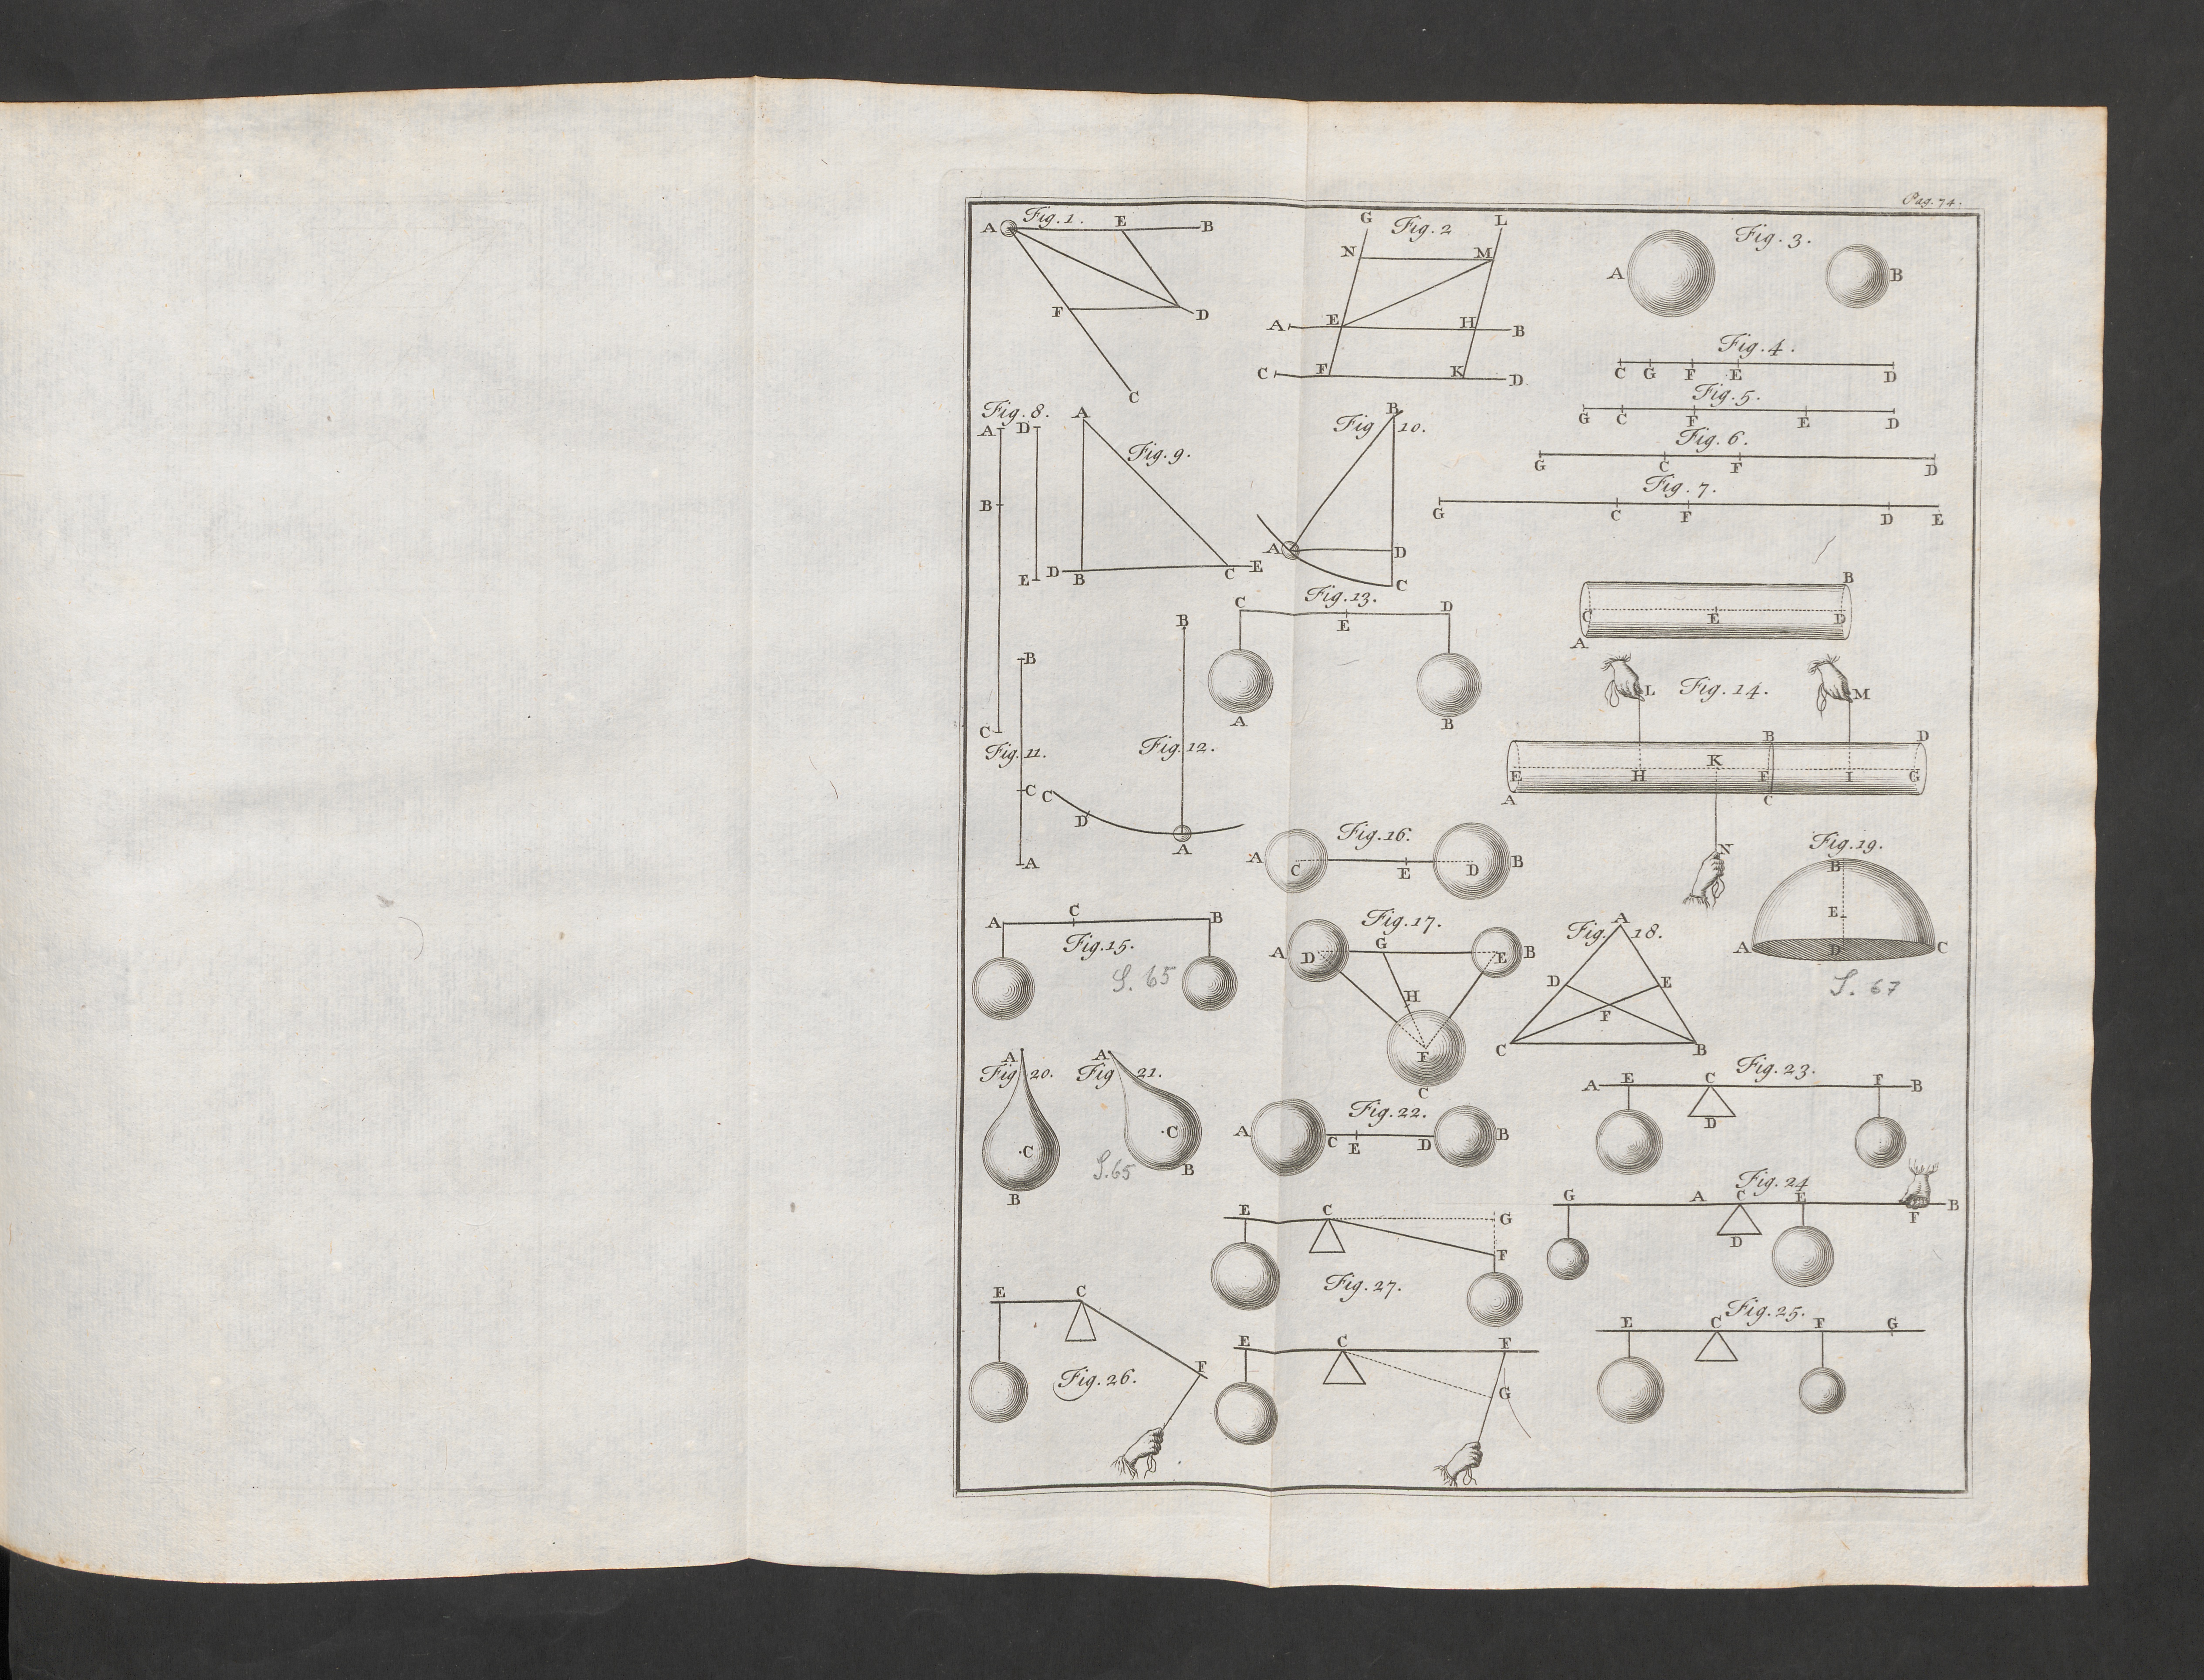 Pag. 74.
Fig. 1.
A E B
F D
C
Fig. 2
G L
N M
A E H B
C F K D
Fig. 3.
A B
Fig. 4.
C G F E D
Fig. 5.
G C F E D
Fig. 6.
G C F D
Fig. 7.
G C F D E
Fig. 8.
A D
B
E
C
Fig. 9.
A
D B C E
Fig. 10.
B
A D
C
Fig. 11.
B
C
A
Fig. 12.
B
C
D
A
Fig. 13.
C E D
A B
B
C E D
A
L Fig. 14. M
B D
K
E H F I G
A C
N
Fig. 15.
A C B
S. 65
Fig. 16.
A C E D B
Fig. 17.
A D G E B
H
F
C
Fig. 18.
A
D E
F
C B
Fig. 19.
B
E
A D C
S. 67
Fig. 20.
A
C
B
Fig. 21.
A
C
B
S. 65
Fig. 22.
A C E D B
Fig. 23.
A E C F B
D
Fig. 24
G A C E F B
D
Fig. 25.
E C F G
Fig. 26.
E C
F
Fig. 27.
E C G
F
E C F
G